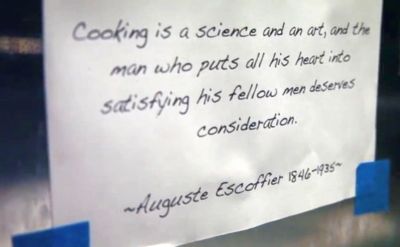 Cooking is a science and an art, and the
man who puts all his heart into
satisfying his fellow men deserves
consideration.
~Auguste Escoffier 1846-1935~